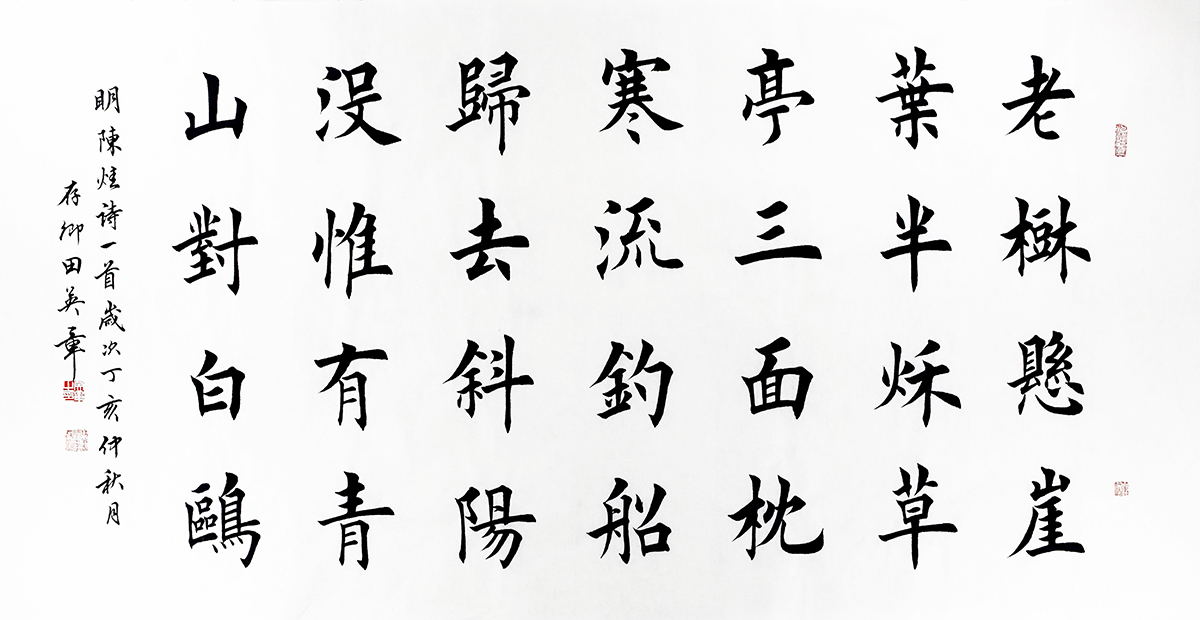 老樹懸崖
葉半秌草
亭三面枕
寒流釣船
歸去斜陽
没惟有青
山對白鷗
明陳炷诗一首歲次丁亥仲秋月
存卿田英章